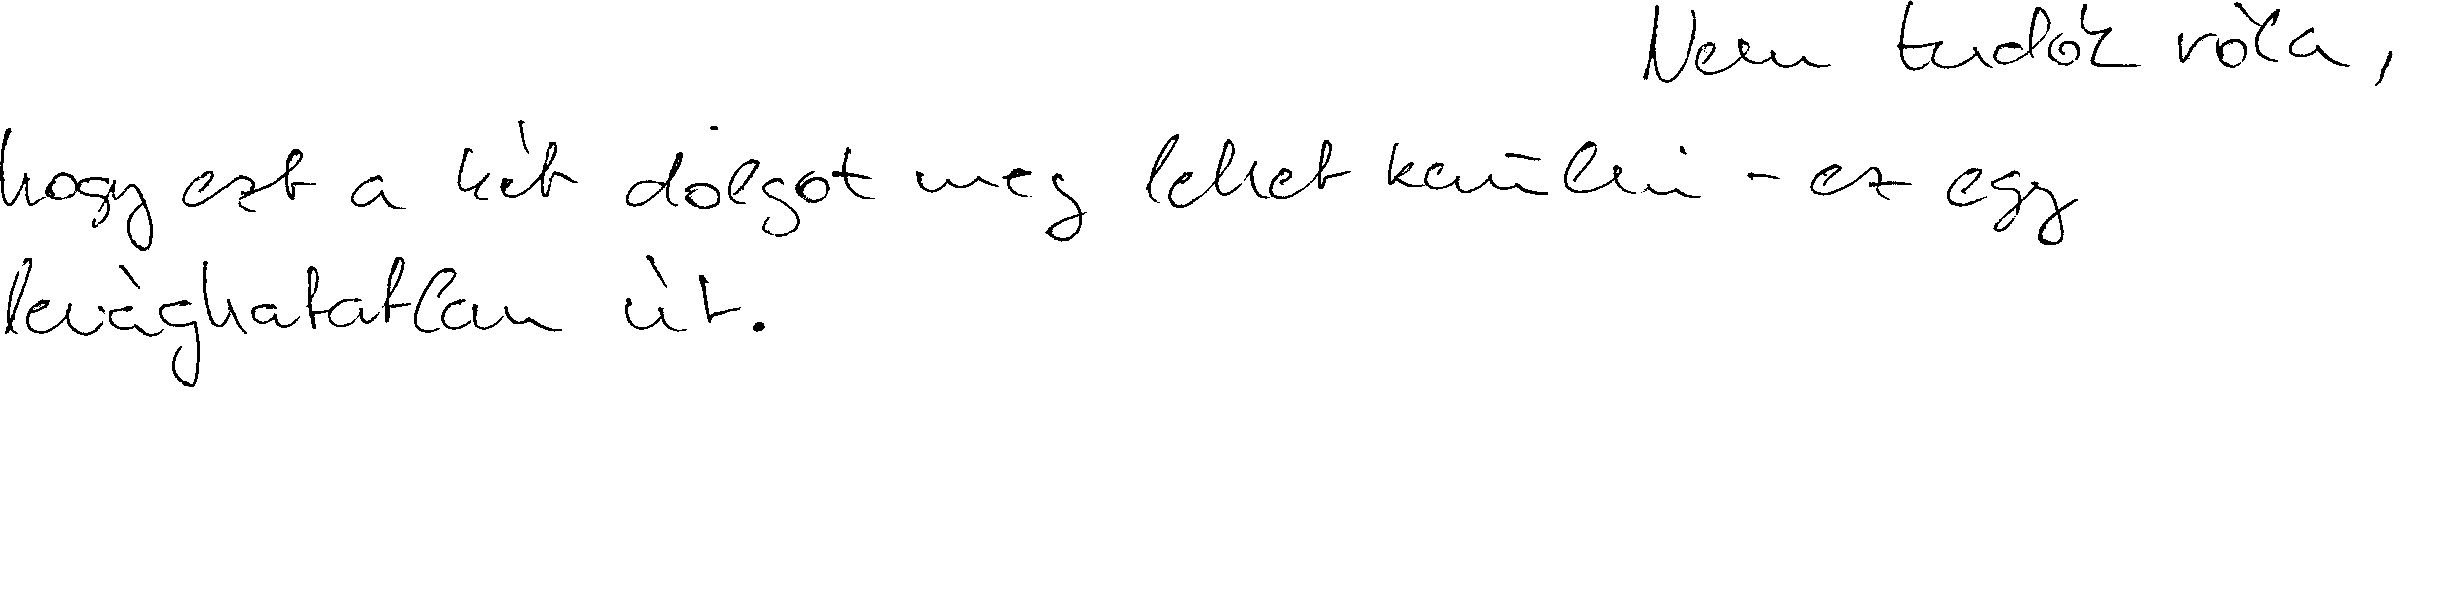 Nem tudok róla,
hogy ezt a két dolgot meg lehet kerülni - ez egy
levághatatlan út.